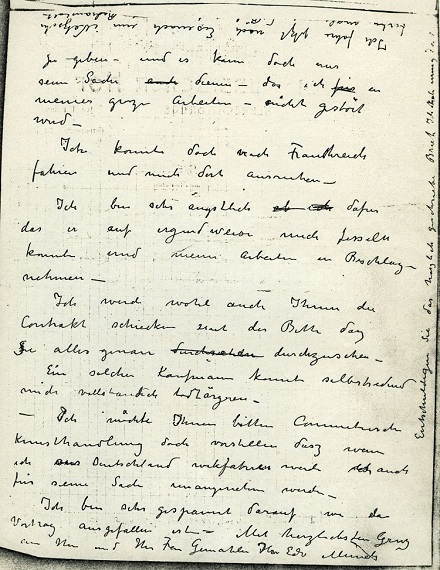 Ich fahre jetzt nach
zu geben – und es kann doch nur
sein Sache dienen – das ich in
meiner grosze Arbeiten – nicht gestört
wird –
Ich konnte doch nach Frankreich
fahren und mich dort ausruhen –
Ich bin sehr ängstlich dafür
das er auf irgendweise mich fesseln
konnte und meine Arbeiten in Beschlag-
nehmen –
Ich werd wohl auch Ihnen die
Contrakt schicken mit der Bitte dasz
Sie alles genau durchzusehen –
Ein solcher Kaufmann konnte selbstredend
mich vollständich
– Ich möchte Ihnen bitten Commetersche
Kunsthandlung doch vorstellen dasz wenn
ich Deutschland werd auch
für seine Sache unangenehm werden –
Ich bin sehr gespannt darauf wie der
Vortrag ausgefallen ist – Mit herzlichsten Grusz
an Ihnen und Ihr Frau Gemahlin Ihr Edv Munch
Entschuldigen Sie das Brief